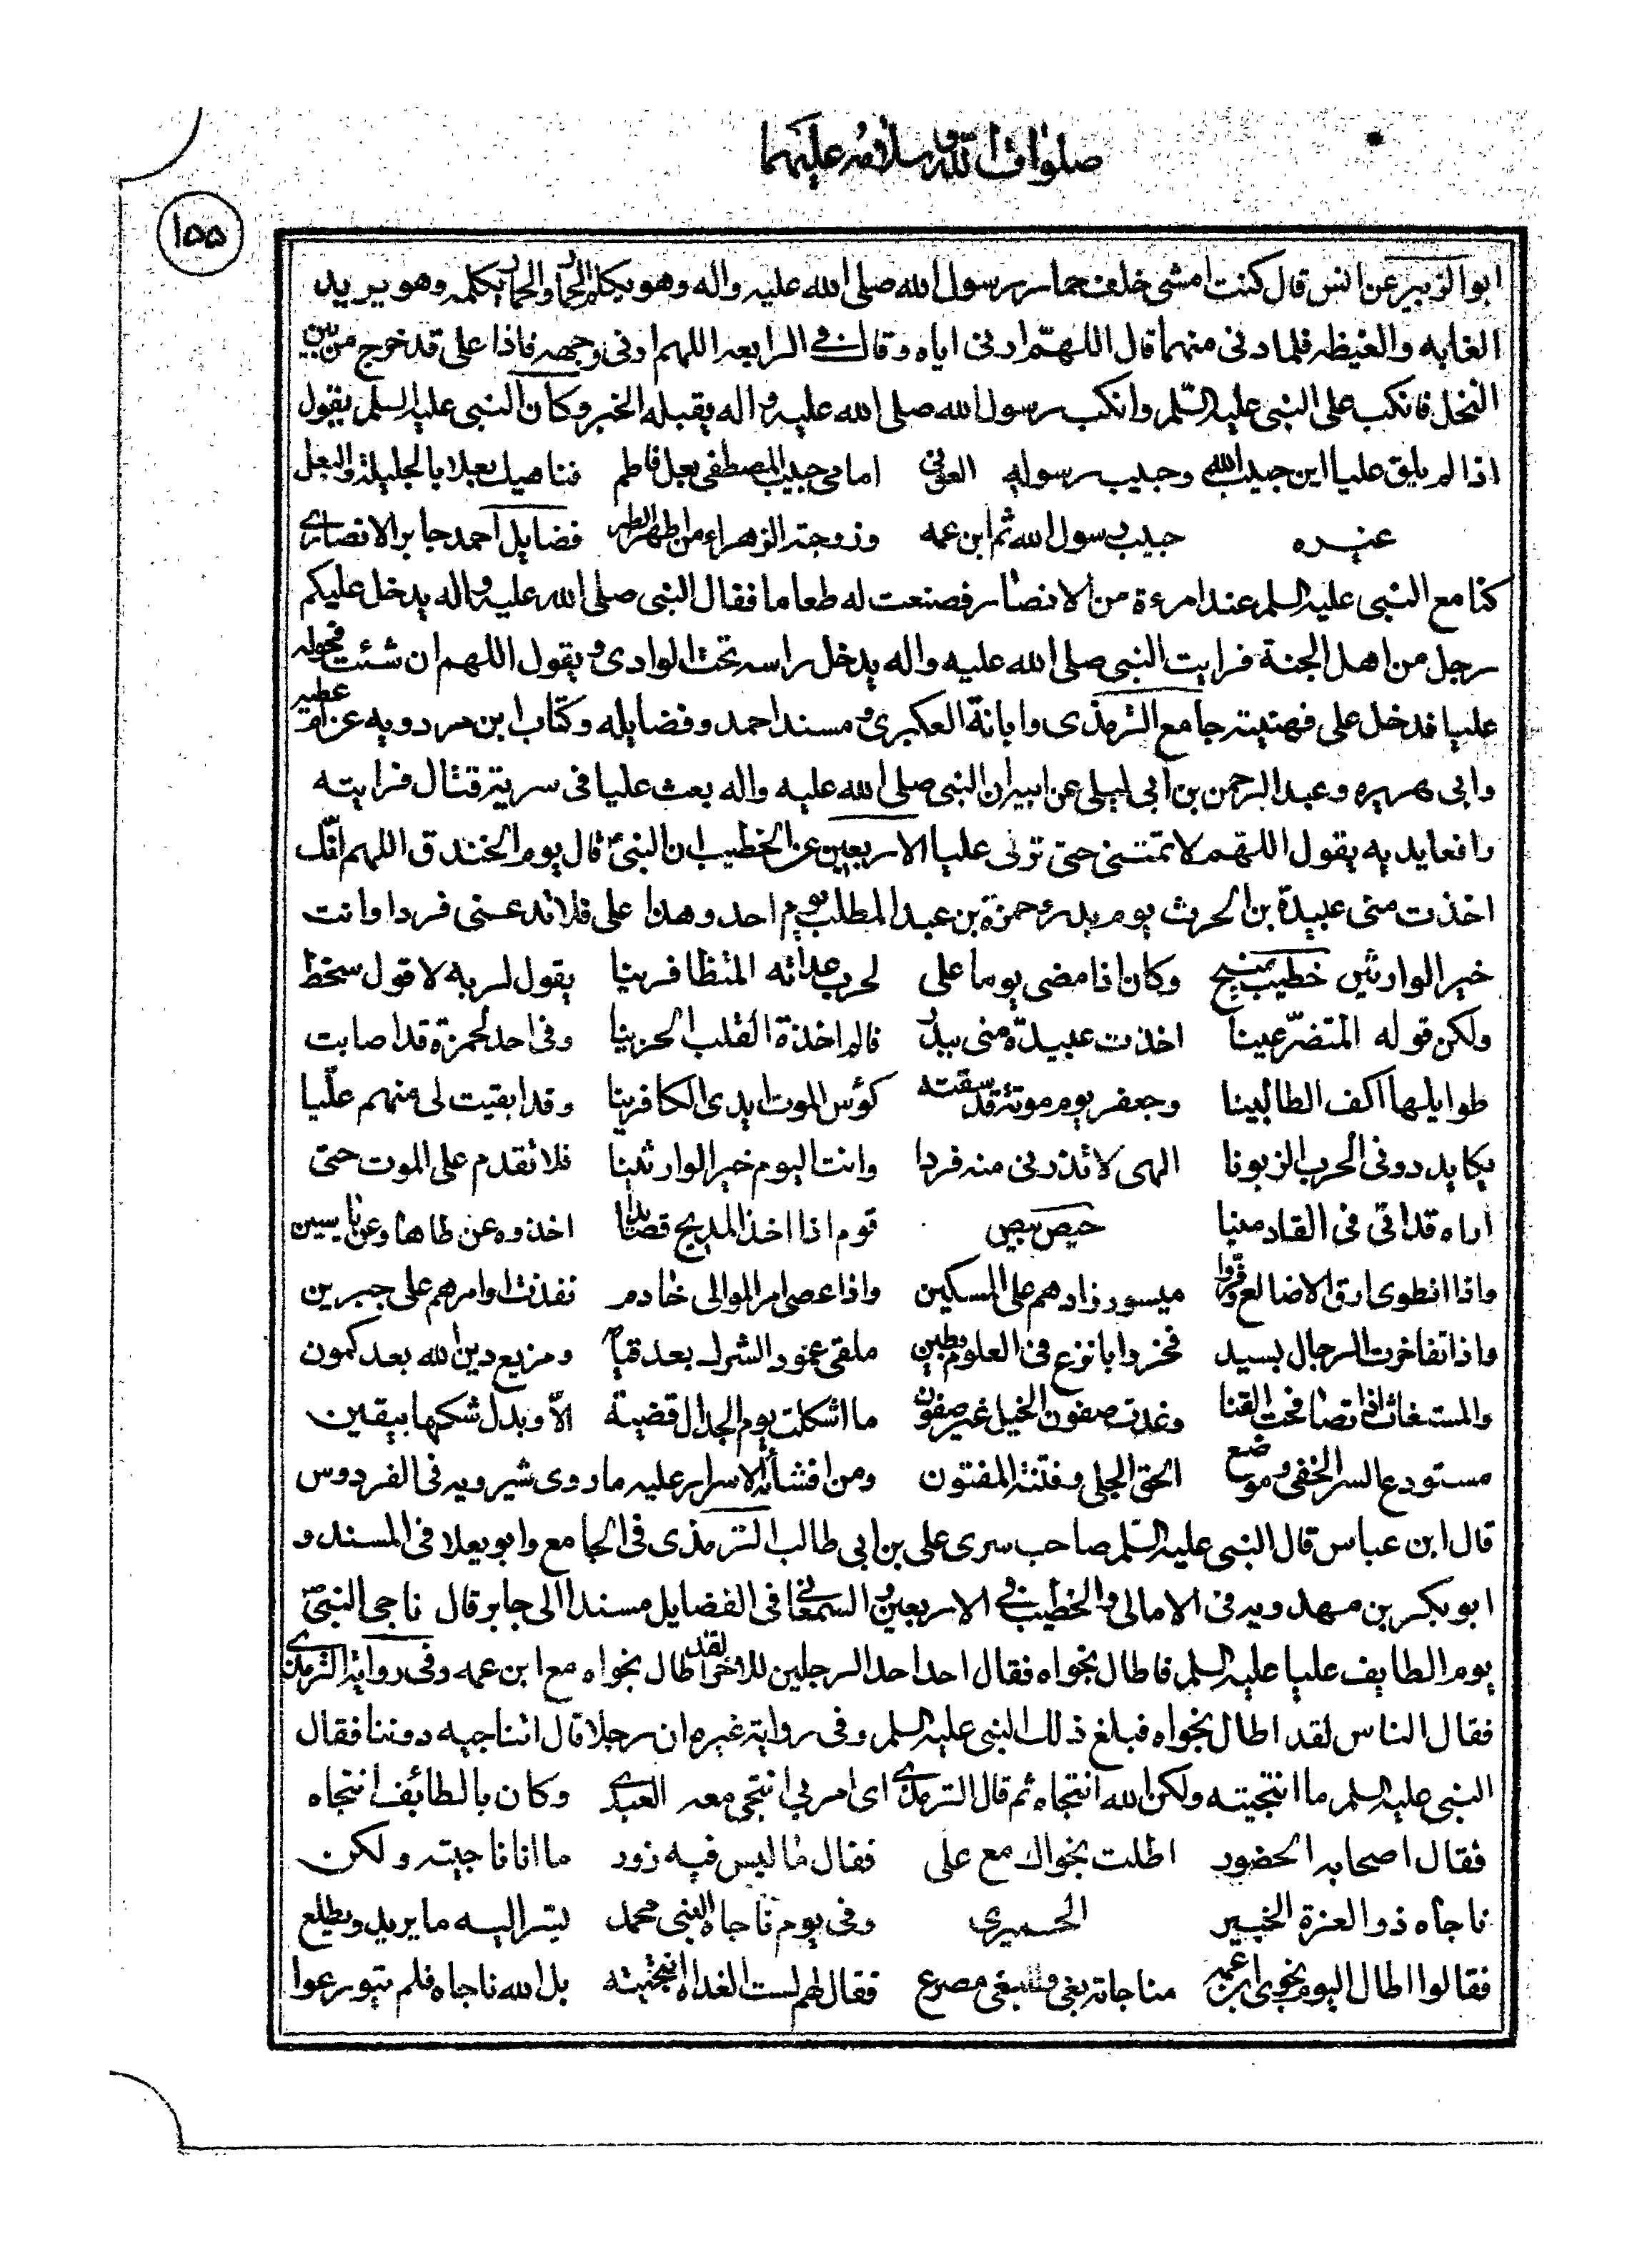 صلوات الله وسلامه عليهما
١٥٥
ابو الزبير عن انس قال كنت امشى خلف حمار رسول الله صلى الله عليه واله وهو يكلم الحمار والحمار يكلمه وهو يريد
الغابه والغيظه فلما دنى منهما قال اللهم ارنى اياه وقال فى الرابعه اللهم ارنى وجهه فاذا على قد خرج من بين
النخل فانكب على النبى عليه السلم وانكب رسول الله صلى الله عليه واله يقبله الخبر وكان النبى عليه السلم يقول
اذا لم يلق عليا اين حبيب الله وحبيب رسوله العونى امامى حبيب المصطفى بعل فاطم فناهيك بعلا بالجليلة والبعل
غيره حبيب رسول الله ثم ابن عمه وزوجته الزهراء من اطهر الطهر فضايل احمد جابر الانصارى
كنا مع النبى عليه السلم عند امرءة من الانصار فصنعت له طعاما فقال النبى صلى الله عليه واله يدخل عليكم
رجل من اهل الجنة فرايت النبى صلى الله عليه واله يدخل راسه تحت الوادى ويقول اللهم ان شئت فحوله
عليا فدخل على فهنيته جامع الترمذى وابانة العكبرى ومسند احمد وفضايله وكتاب ابن مردويه عن ام عطيه
وابى هريره وعبد الرحمن بن ابى ليلى عن ابيه ان النبى صلى الله عليه واله بعث عليا فى سرية قتال فرايته
رافعا يديه يقول اللهم لا تمتنى حتى ترنى عليا الاربعين عن الخطيب ان النبى قال يوم الخندق اللهم انك
اخذت منى عبيدة بن الحرث يوم بدر وحمزة بن عبد المطلب يوم احد وهذا على فلا تدعنى فردا وانت
خير الوارثين خطيب منبج وكان اذا مضى يوما على لحرب عداته المتظافرينا يقول لربه لا قول سخط
ولكن قوله المتضرعينا اخذت عبيدة منى ببدر فالم اخذة القلب الحزينا وفى احد لحمزة قد اصابت
طوايلها اكف الطالبينا وجعفر يوم موتة قد سقته كؤس الموت ايدى الكافرينا وقد ابقيت لى منهم عليا
يكايد دونى الحرب الزبونا الهى لا تذرنى منه فردا وانت اليوم خير الوارثينا فلا تقدم على الموت حتى
اراه قد اتى فى القادمينا حيص بيص قوم اذا اخذ المديح قصايدا اخذوه عن طاها وعن ياسين
واذا انطوى ارق الاضالع وفروا ميسور زادهم على المسكين واذا عصى امر الموالى خادم نفذت اوامرهم على جبرين
واذا تفاخرت الرجال بسيد فخروا بانزع فى العلوم بطين ملقى عمود الشرك بعد قيامه ومزيع دين الله بعد كمون
والمستغاث اذا تصافحت القنا وغدت صفون الخيل غير صفون ما اشكلت يوم الجدال قضية الا وبدل شكها بيقين
مستودع السر الخفى وموضع الحق الجلى وفتنة المفتون ومن افشائه الاسرار عليه ما روى شيرويه فى الفردوس
قال ابن عباس قال النبى عليه السلم صاحب سرى على بن ابى طالب الترمذى فى الجامع وابو يعلا فى المسند و
ابو بكر بن مهدويه فى الامالى والخطيب فى الاربعين والسمعانى فى الفضايل مسندا الى جابر قال ناجى النبى
يوم الطايف عليا عليه السلم فاطال نجواه فقال احد احد الرجلين للاخر لقد اطال نجواه مع ابن عمه وفى رواية الترمذى
فقال الناس لقد اطال نجواه فبلغ ذلك النبى عليه السلم وفى رواية غيره ان رجلا قال اتناجيه دوننا فقال
النبى عليه السلم ما انتجيته ولكن الله انتجاه ثم قال الترمذى اى امر بى انتجى معه العبدى وكان بالطائف انتجاه
فقال اصحابه الحضور اطلت نجواك مع على فقال ما ليس فيه زور ما انا ناجيته ولكن
ناجاه ذو العزة الخبير الحميرى وفى يوم ناجاه النبى محمد يسر اليه ما يريد ويطلع
فقالوا اطال اليوم نجوى ابن عمه مناجاته بغى وللبغى مصرع فقال لهم لست الغداة انتجيته بل الله ناجاه فلم يتورعوا